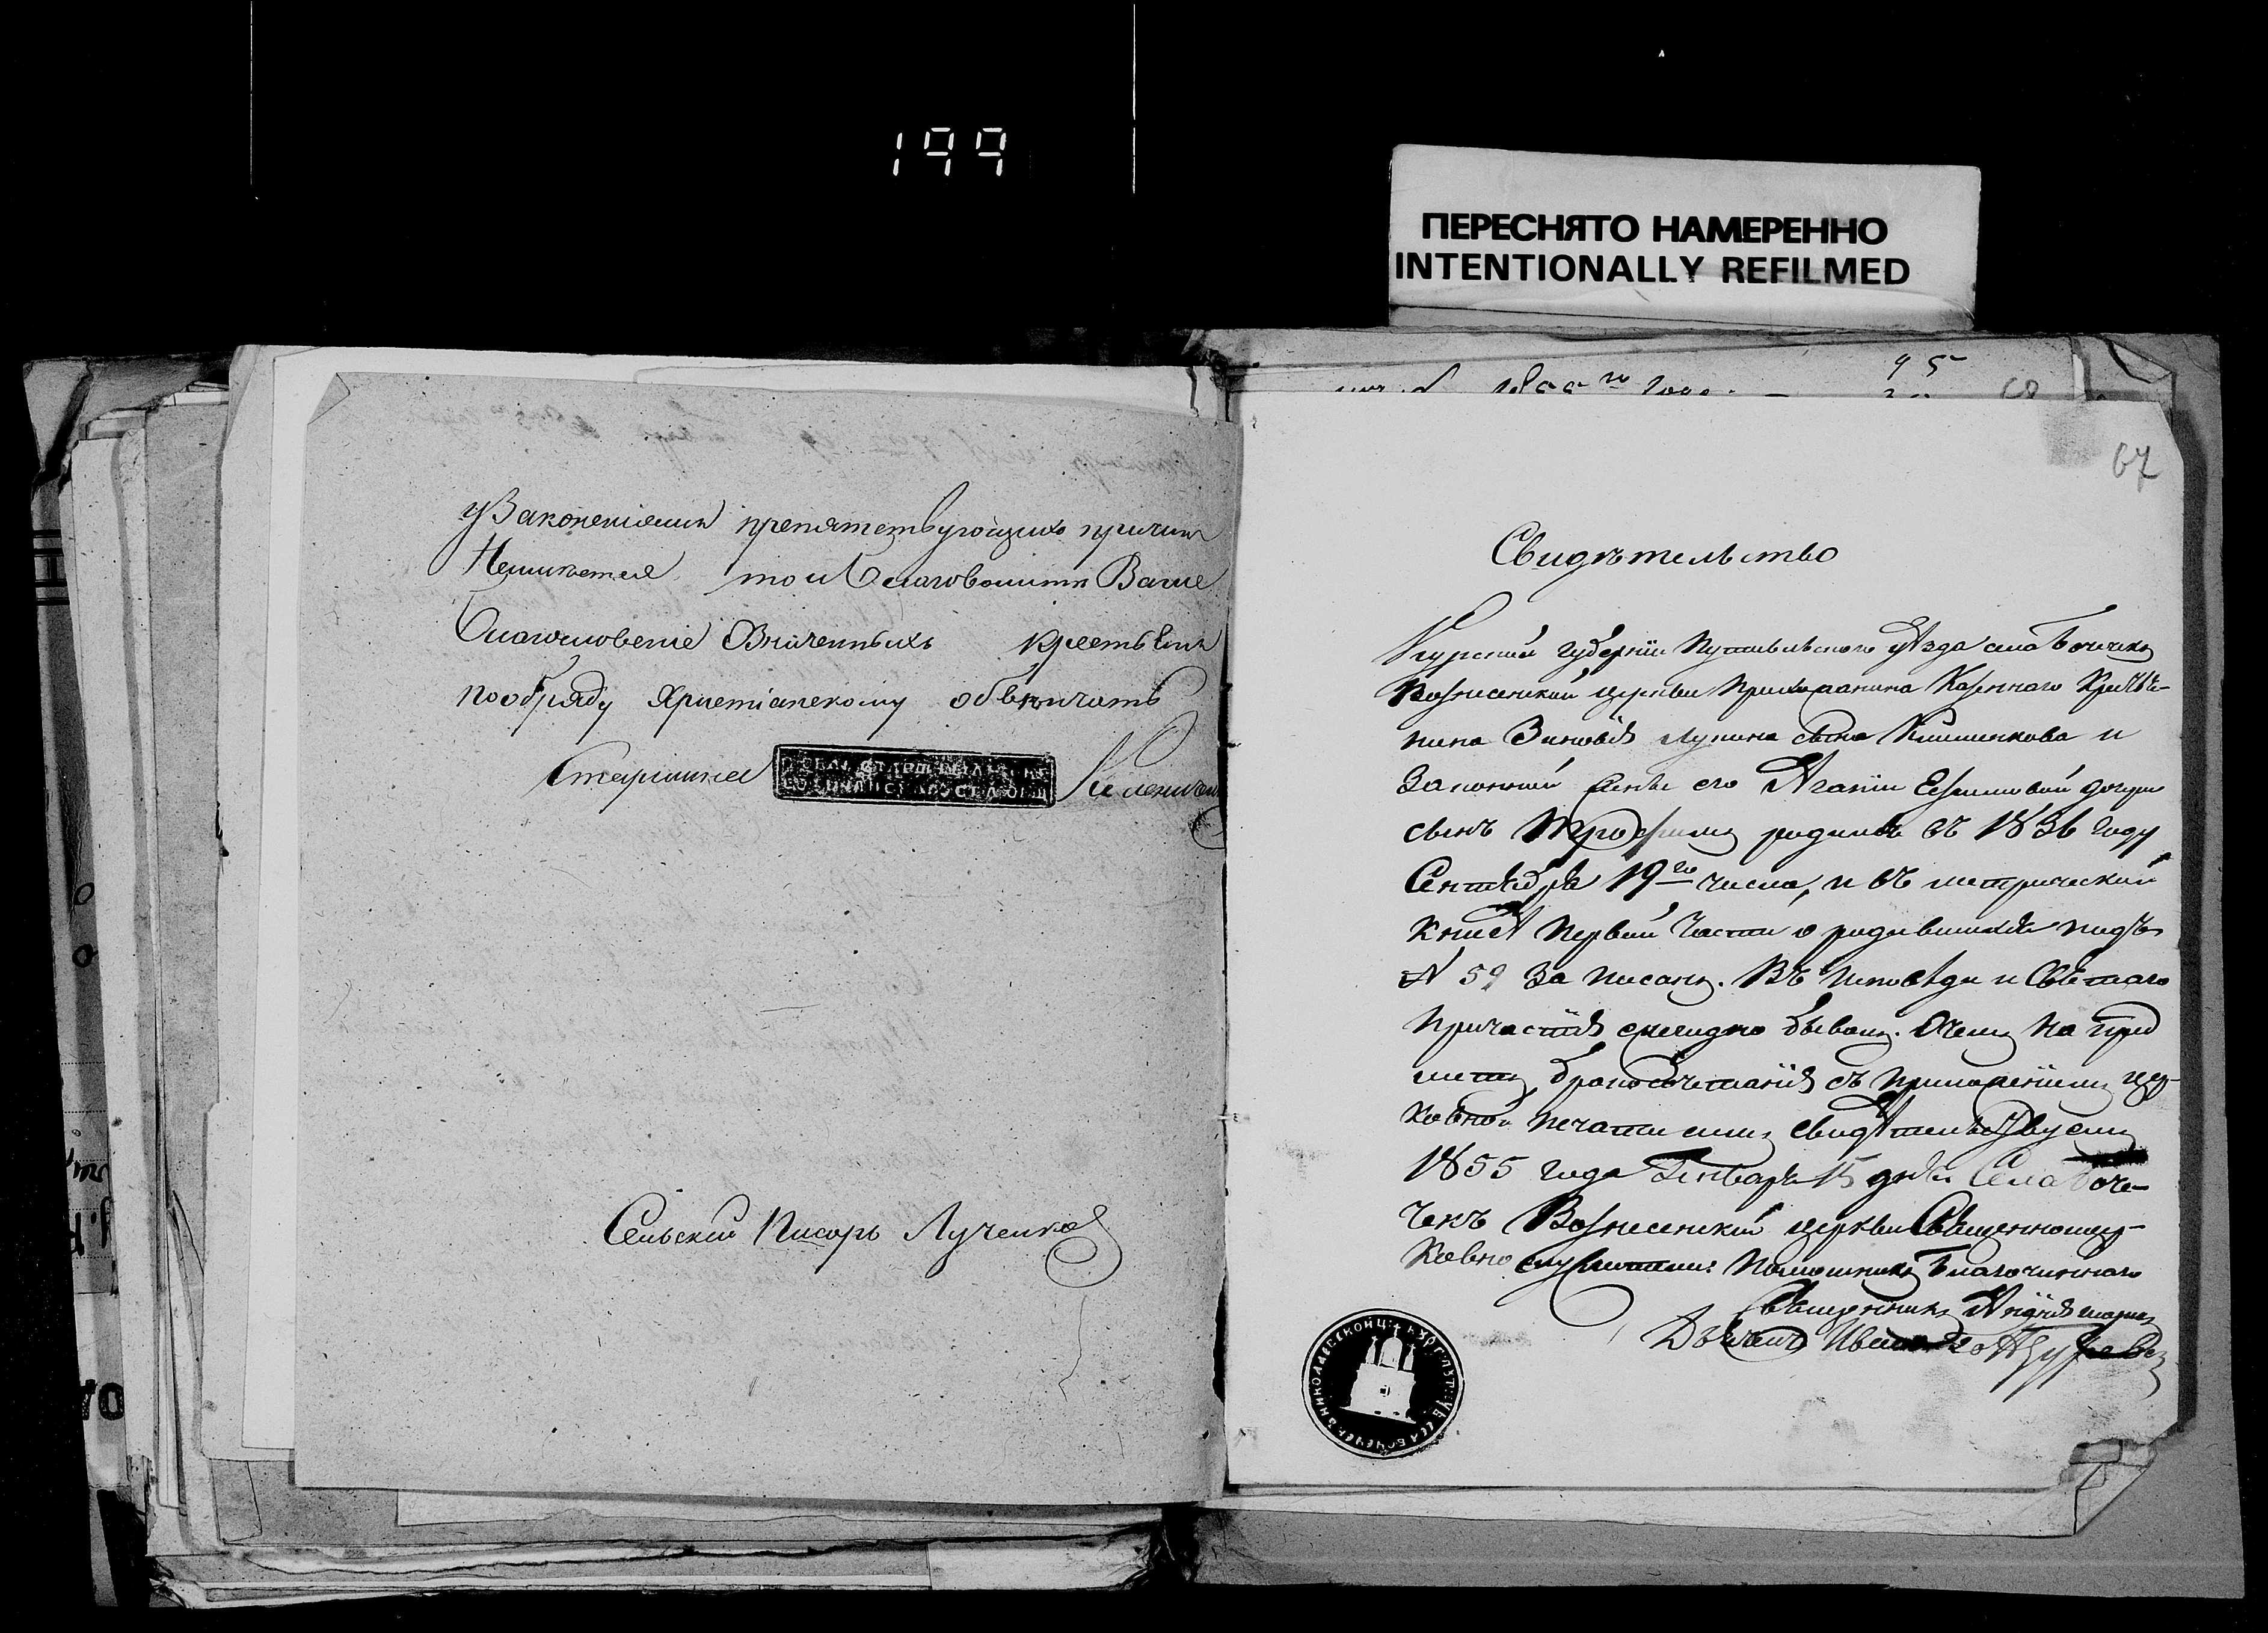 199
ПЕРЕСНЯТО НАМЕРЕННО
INTENTIONALLY REFILMED
95
67
уЗаконениямъ препятствующихъ причинъ
Неимѣется то и благоволитъ Ваше
Благословеніе Означенныхъ крестьянъ
пообряду Христіанскому обвѣнчать
Старшина
Сельскій Писарь Лученко
Свидѣтельство
Курской губерніи Путивльского уѣзда села Бочечекъ
Вознесенской церкви прихожанина Казеннаго Крестья-
нина Зиновія Лукина сына Клименкова и
Законной жены его Агапіи Ефимовой дочери
сынъ Трофимъ родился въ 1836 году
Сентября 19го числа, и въ метрической
книгѣ первой части о родившихся подъ
№ 59 Записанъ. Въ исповѣди и Святаго
Причастія ежегодно бывалъ. О чемъ на пред
метъ бракосочетанія съ приложеніемъ цер-
ковной печати симъ свидѣтельствуемъ
1855 года Января 15 дня Села Боче-
чекъ Вознесенской церкви Священноцер-
ковно служители: Помошникъ Благочиннаго
Священникъ